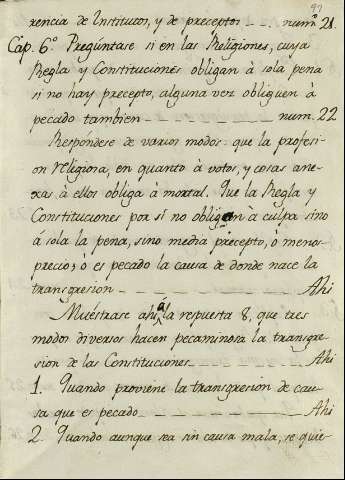 97
rencia de Institutos, y de preceptos _ _ _ num.º 21.
Cap. 6.º Pregúntase si en las Religiones, cuya
Regla y Constituciones obligan à sola pena
si no hay precepto, alguna vez obliguen à
pecado tambien _ _ _ _ _ _ _ num. 22
Respóndese de varios modos: que la profesi-
on religiosa, en quanto à votos, y cosas ane-
xas à ellos obliga à mortal. Que la Regla y
Constituciones por sí no obligen à culpa sino
á sola la pena, sino media precepto, ò menos-
precio; ò es pecado la causa de donde nace la
transgresion _ _ _ _ _ _ _ Ahi
Muéstrase ahi á la respuesta 8, que tres
modos diversos hacen pecaminosa la transgre-
sion de las Constituciones _ _ _ _ _ Ahi
1. Quando proviene la transgresion de cau-
sa que es pecado _ _ _ _ _ _ _ Ahi
2. Quando aunque sea sin causa mala, se quie-